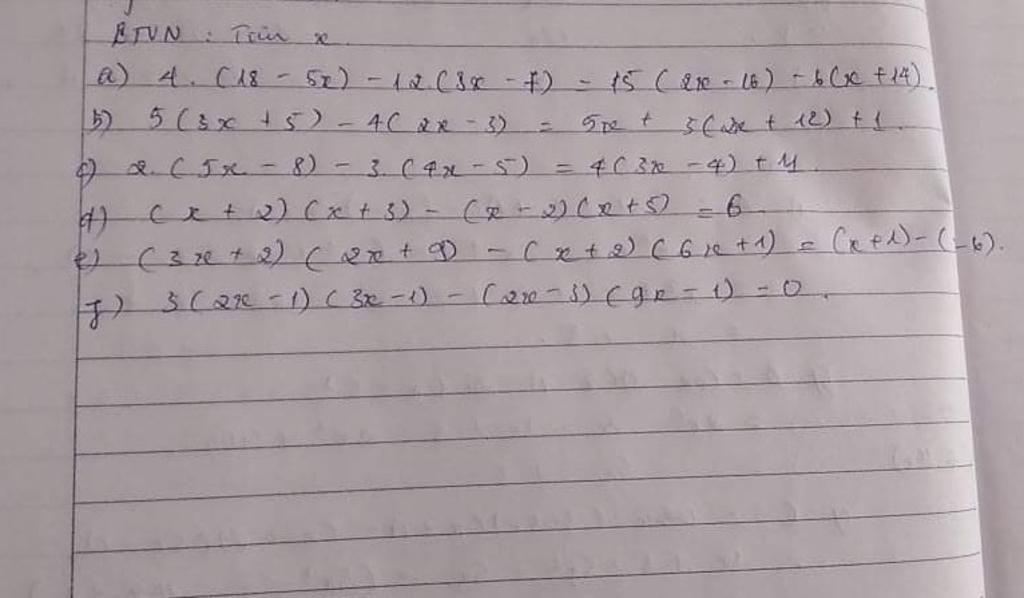 BTVN : Tìm x
a) 4. (18 - 5x) - 12. (3x - 7) = 15 (2x - 16) - 6(x + 14).
b) 5 (3x + 5) - 4( 2x - 3) = 5x + 3(2x + 12) + 1.
c) 2. (5x - 8) - 3. (4x - 5) = 4 (3x - 4) + 11
d) (x + 2) (x + 3) - (x - 2) (x + 5) = 6
e) (3x + 2) (2x + 9) - (x + 2) (6x + 1) = (x + 1) - (x - 6).
f) 3 (2x - 1) (3x - 1) - (2x - 3) (9x - 1) = 0.